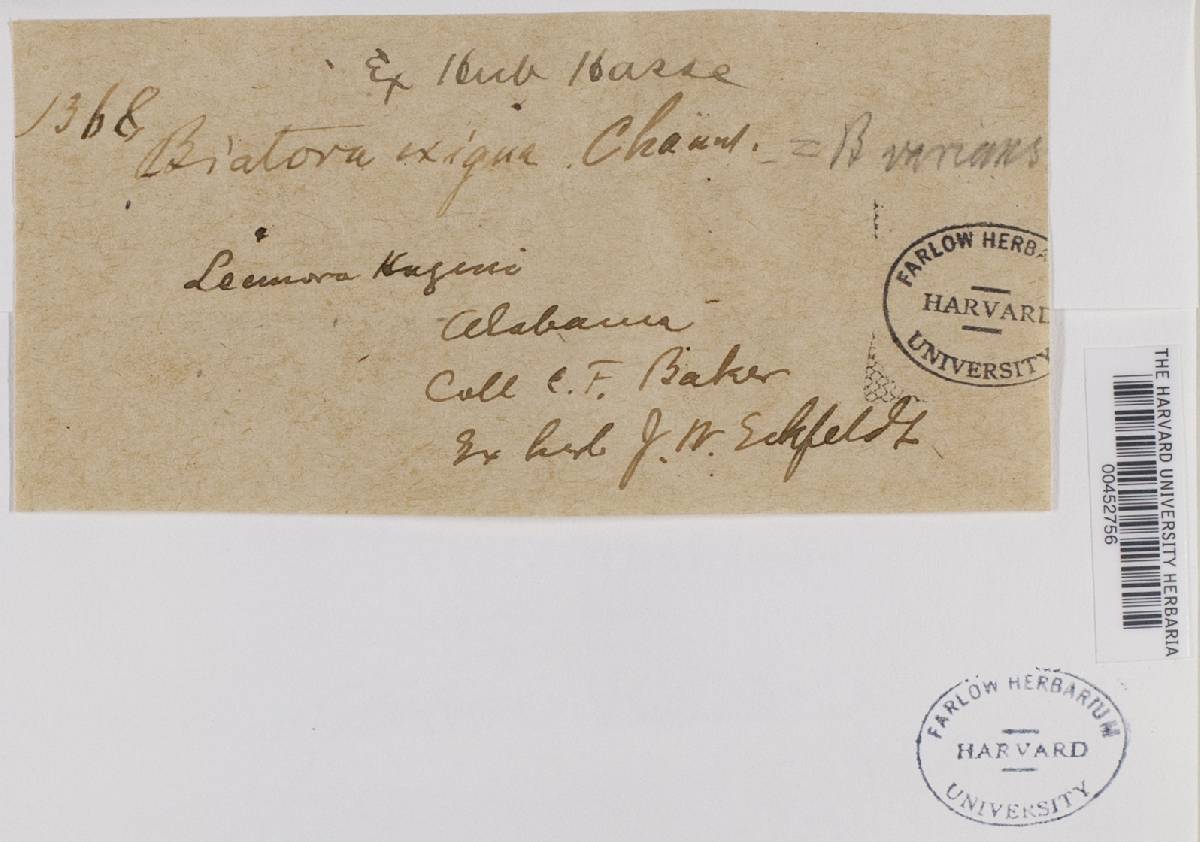 Ex Herb Hasse
1368
Biatora exigua Chaub. = B varians
Lecanora Hageni
Alabama
Coll C. F. Baker
Ex herb J. W. Eckfeldt
FARLOW HERBA
HARVARD
UNIVERSITY
THE HARVARD UNIVERSITY HERBARIA
00452756
FARLOW HERBARIUM
HARVARD
UNIVERSITY